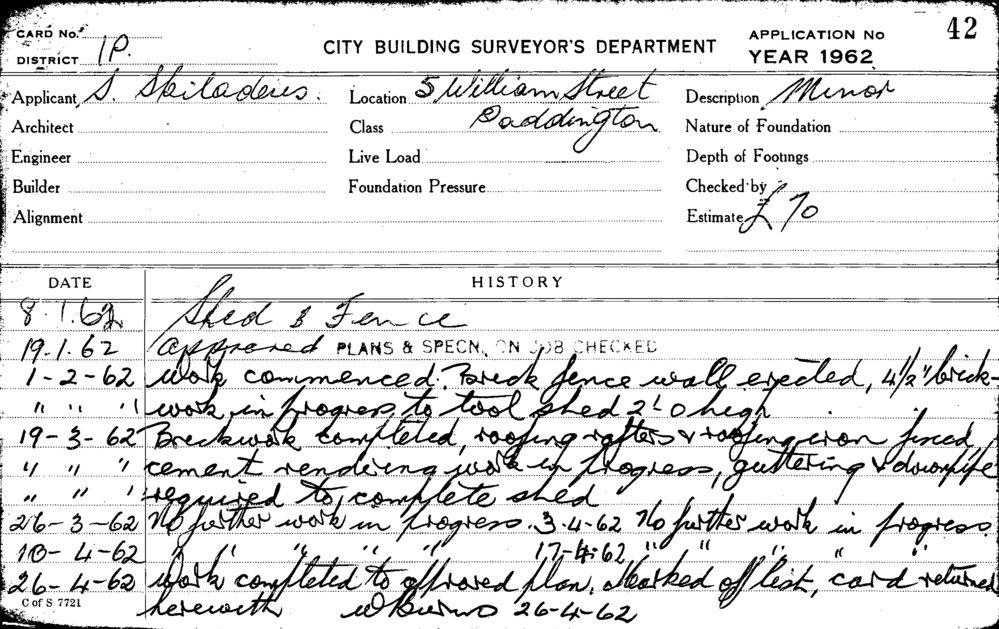 CARD No.
DISTRICT 1P.
CITY BUILDING SURVEYOR'S DEPARTMENT
APPLICATION No 42
YEAR 1962
Applicant S. Skiladeris. Location 5 William Street Description Minor
Architect Class Paddington Nature of Foundation
Engineer Live Load Depth of Footings
Builder Foundation Pressure Checked by
Alignment Estimate £70
DATE HISTORY
8.1.62 Shed & Fence
19.1.62 approved PLANS & SPECN, ON JOB CHECKED
1-2-62 Work commenced. Brick fence wall erected, 4½" brick-
" " " work in progress to tool shed 2'-0 high
19-3-62 Brickwork completed, roofing rafters & roofing iron fixed,
" " " cement rendering work in progress, guttering & downpipe
" " " required to complete shed
26-3-62 No further work in progress. 3-4-62 No further work in progress.
10-4-62 " " " " " 17-4-62 " " " " "
26-4-62 Work completed to approved plan. Marked off list, card returned
C of S 7721 herewith W Burns 26-4-62